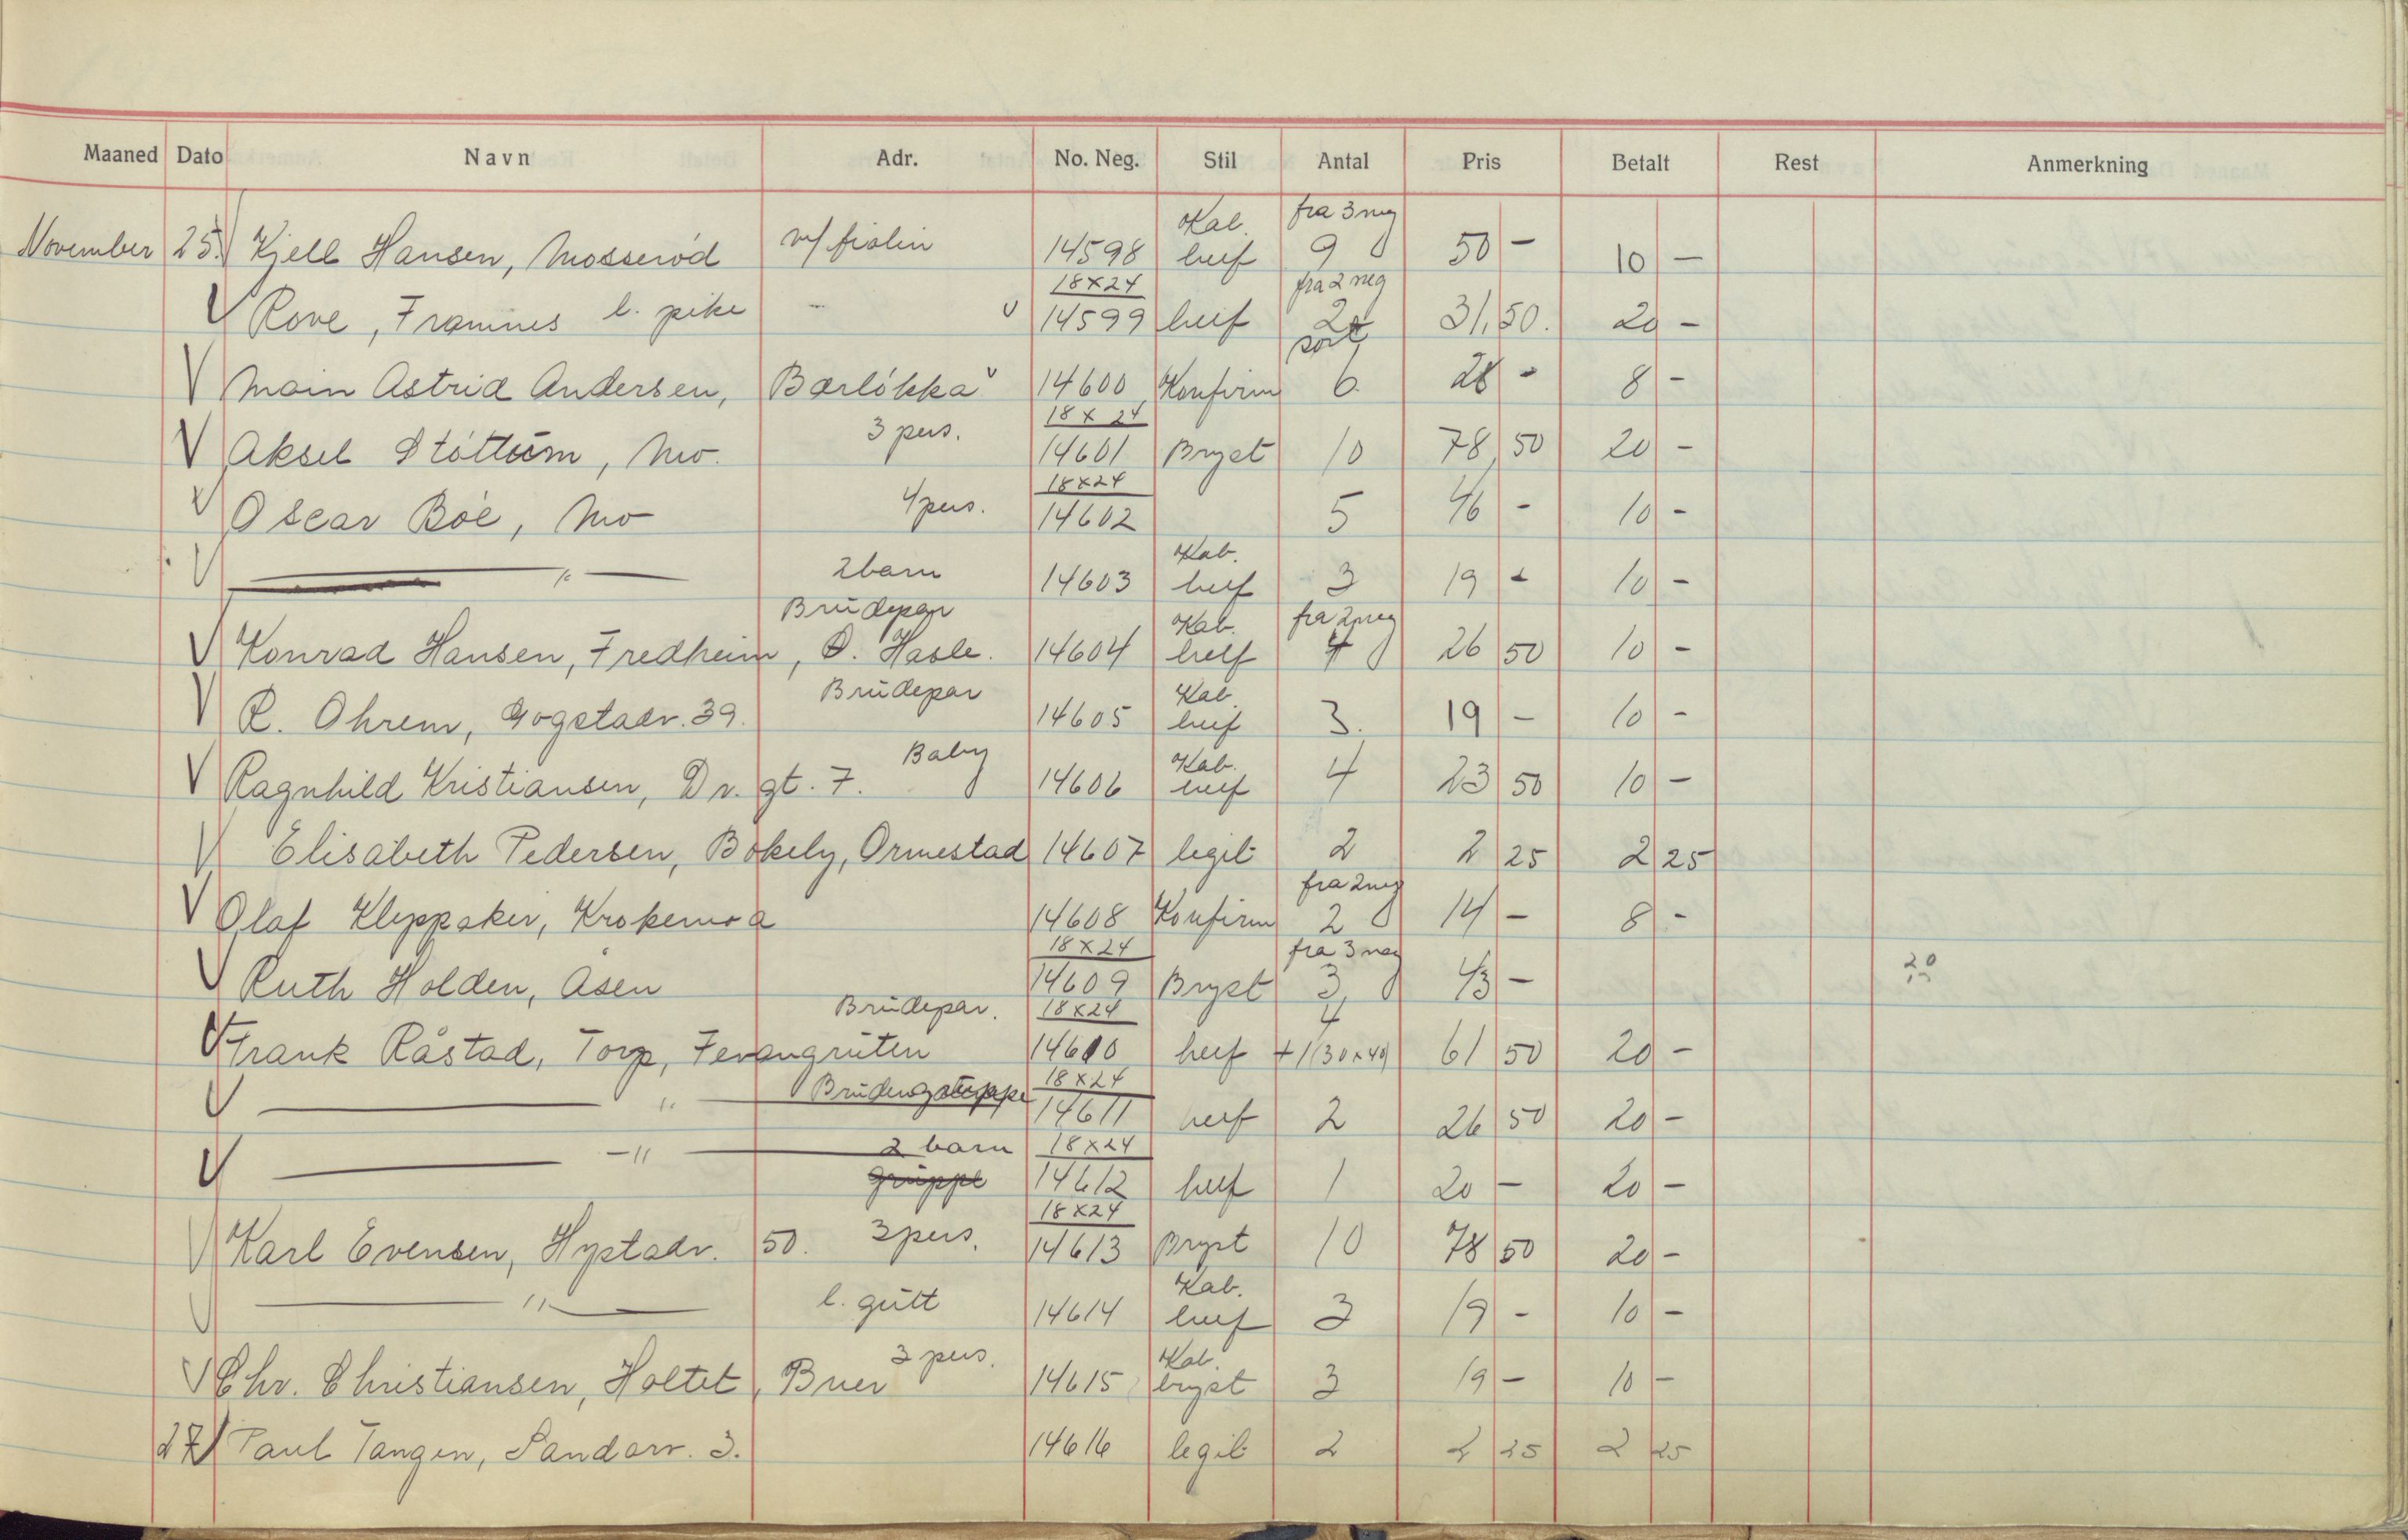 Maaned Dato Navn Adr. No. Neg. Stil Antal Pris Betalt Rest Anmerkning
November 25. Kjell Hansen, Mosserød m/ fiolin 14598 Kab. helf fra 3 neg 9 50 - 10 -
Rove, Framnes l. pike 18x24 14599 helf fra 2 neg 2 31,50. 20 -
Astrid Andersen, Bærløkka 14600 Konfirm sort 6 28 - 8 -
Aksel Støttum, Mo. 3 pers. 18x24 14601 Bryst 10 78,50 20 -
Oscar Bøe, Mo 4 pers. 18x24 14602 5 46 - 10 -
— " — 2 barn 14603 Kab. helf 3 19 - 10 -
Konrad Hansen, Fredheim, Ø. Hasle. Brudepar 14604 Kab. helf fra 2 neg 4 26 50 10 -
R. Ohrem, Gogstadv. 39. Brudepar 14605 Kab. helf 3. 19 - 10 -
Ragnhild Kristiansen, Dr. gt. 7. Baby 14606 Kab. helf 4 23 50 10 -
Elisabeth Pedersen, Bøkely, Ormestad 14607 legit 2 2 25 2 25
Olaf Kleppaker, Krokemoa 14608 Konfirm fra 2 neg 2 14 - 8 -
Ruth Holden, Åsen 18x24 14609 Bryst fra 3 neg 3 43 - 20
Frank Råstad, Torp, Fevangruten Brudepar. 18x24 14610 helf 4 +1 (30x40) 61 50 20 -
— " — 18x24 14611 helf 2 26 50 20 -
— " — 2 barn gruppe 18x24 14612 helf 1 20 - 20 -
Karl Evensen, Hystadv. 50. 3 pers. 18x24 14613 Bryst 10 78 50 20 -
— " — l. gutt 14614 Kab. helf 3 19 - 10 -
Chr. Christiansen, Holtet, Buer 3 pers. 14615 Kab. bryst 3 19 - 10 -
27 Paul Tangen, Sandarv. 3. 14616 legit 2 2 25 2 25